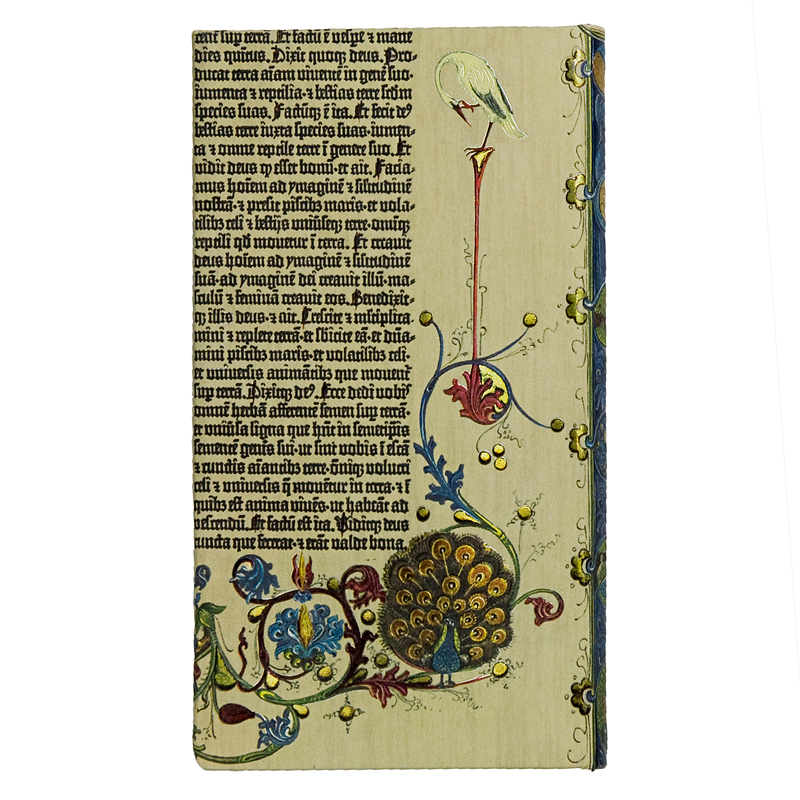 rent sup terrā. Et factū ē vespe ⁊ mane
dies quītus. Dixit quoq; deus. Pro-
ducat terra aīam viventē in genē suo.
iumenta ⁊ reptilia· ⁊ bestias terre scdm
species suas. Factūq; ē ita. Et fecit de⁹
bestias terre iuxta species suas· iumen-
ta ⁊ omne reptile terre ī genere suo. Et
vidit deus ꝙ esset bonū· et ait. Facia-
mus hoīem ad ymaginē ⁊ silitudinē
nostrā· ⁊ presit piscibꝫ maris· et vola-
tilibꝫ celi ⁊ bestijs universeq; terre· omniq;
reptili qd̄ movetur ī terra. Et creavit
deus hoīem ad ymaginē ⁊ silitudinē
suā· ad ymaginē dei creavit illū· ma-
sculū ⁊ feminā creavit eos. Benedixit-
q; illis deus· ⁊ ait. Crescite ⁊ mltiplica-
mini ⁊ replete terrā· et sbicite eā· et dn̄a-
mini piscibꝫ maris· et volatilibꝫ celi·
et universis animātibꝫ que movent᷑
sup terrā. Dixitq; de⁹. Ecce dedi vobis
omnē herbā afferentē semen sup terrā·
et univsa ligna que hn̄t in semetipsis
sementē genis sui· ut sint vobis ī escā
⁊ cunctis aīantibꝫ terre· oīq; volucri
celi ⁊ universis q̄ moventur in terra· ⁊ ī
quibꝫ est anima vivēs· ut habeāt ad
vescendū. Et factū est ita. Viditq; deus
cuncta que fecerat· ⁊ erāt valde bona.